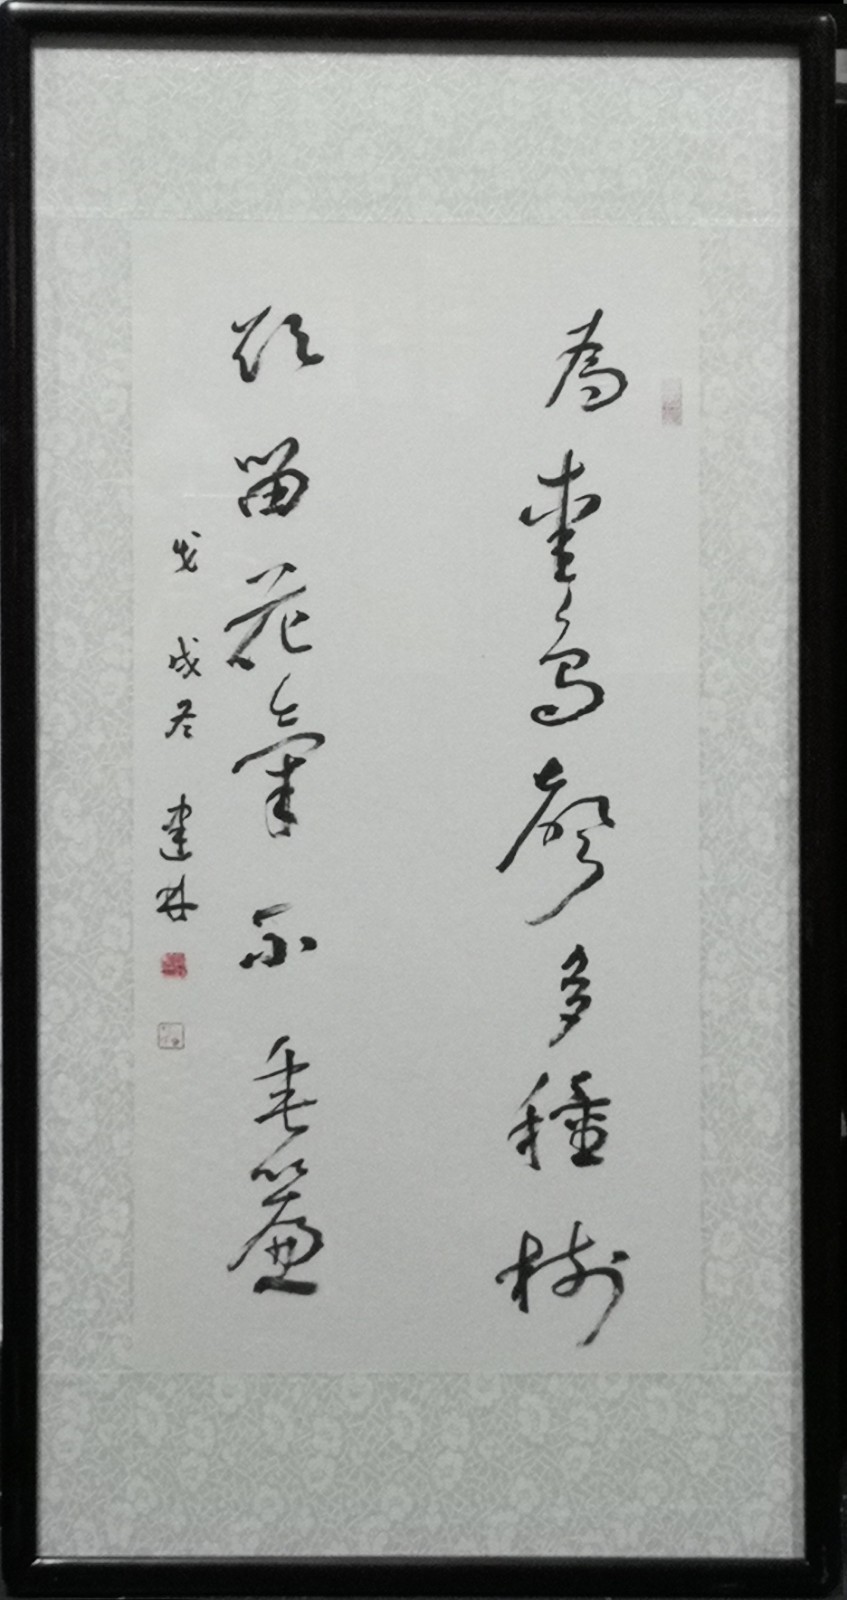 為愛鳥聲多種樹
欲留花氣不垂簾
戊戌冬 建林